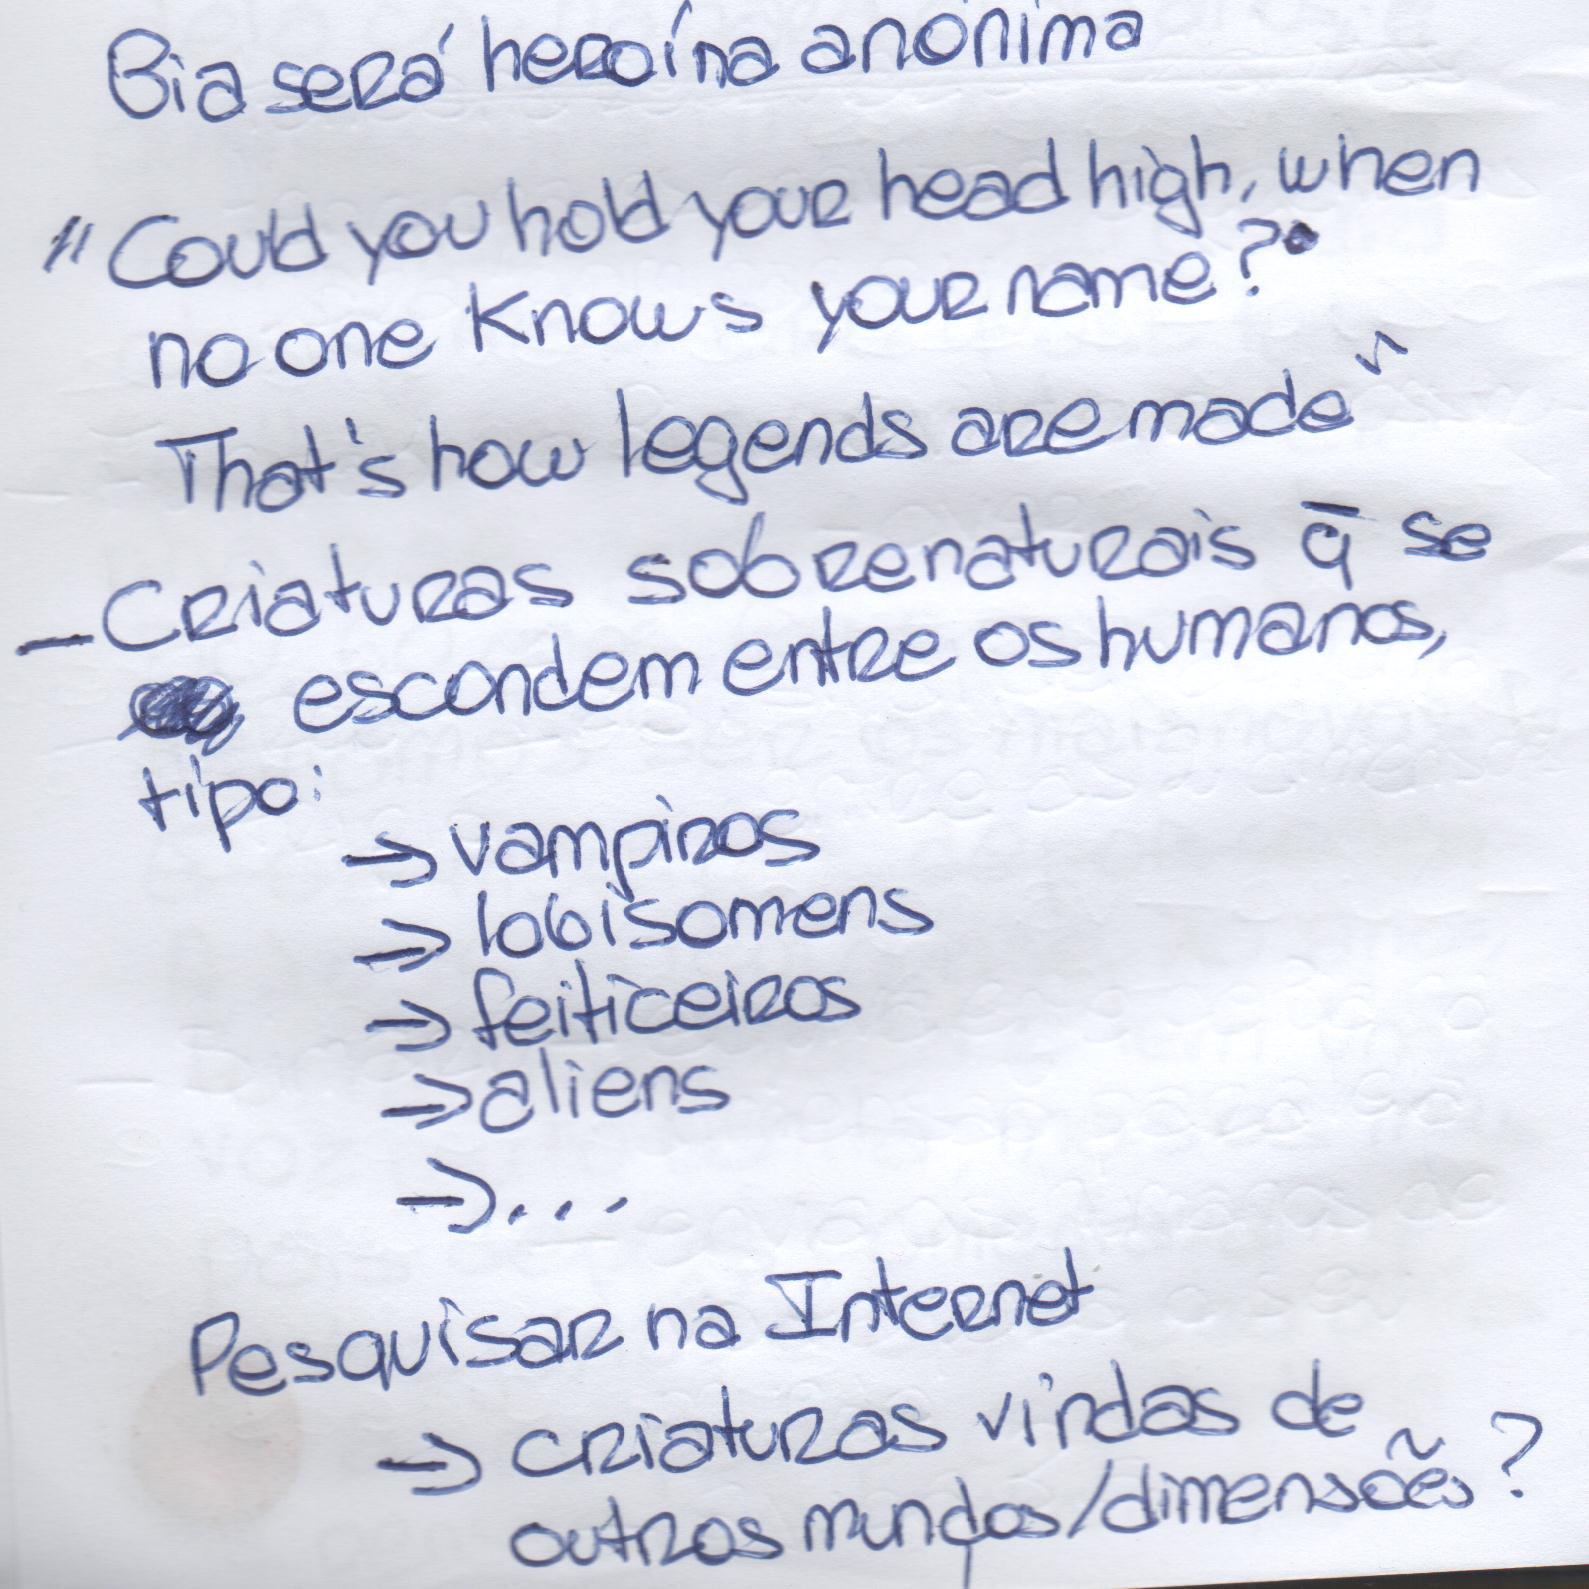 Bia será heroína anónima
"Could you hold your head high, when
no one knows your name?"
That's how legends are made"
- Criaturas sobrenaturais q̄ se
escondem entre os humanos,
tipo:
→ vampiros
→ lobisomens
→ feiticeiros
→ aliens
→ ...
Pesquisar na Internet
→ criaturas vindas de
outros mundos/dimensões?